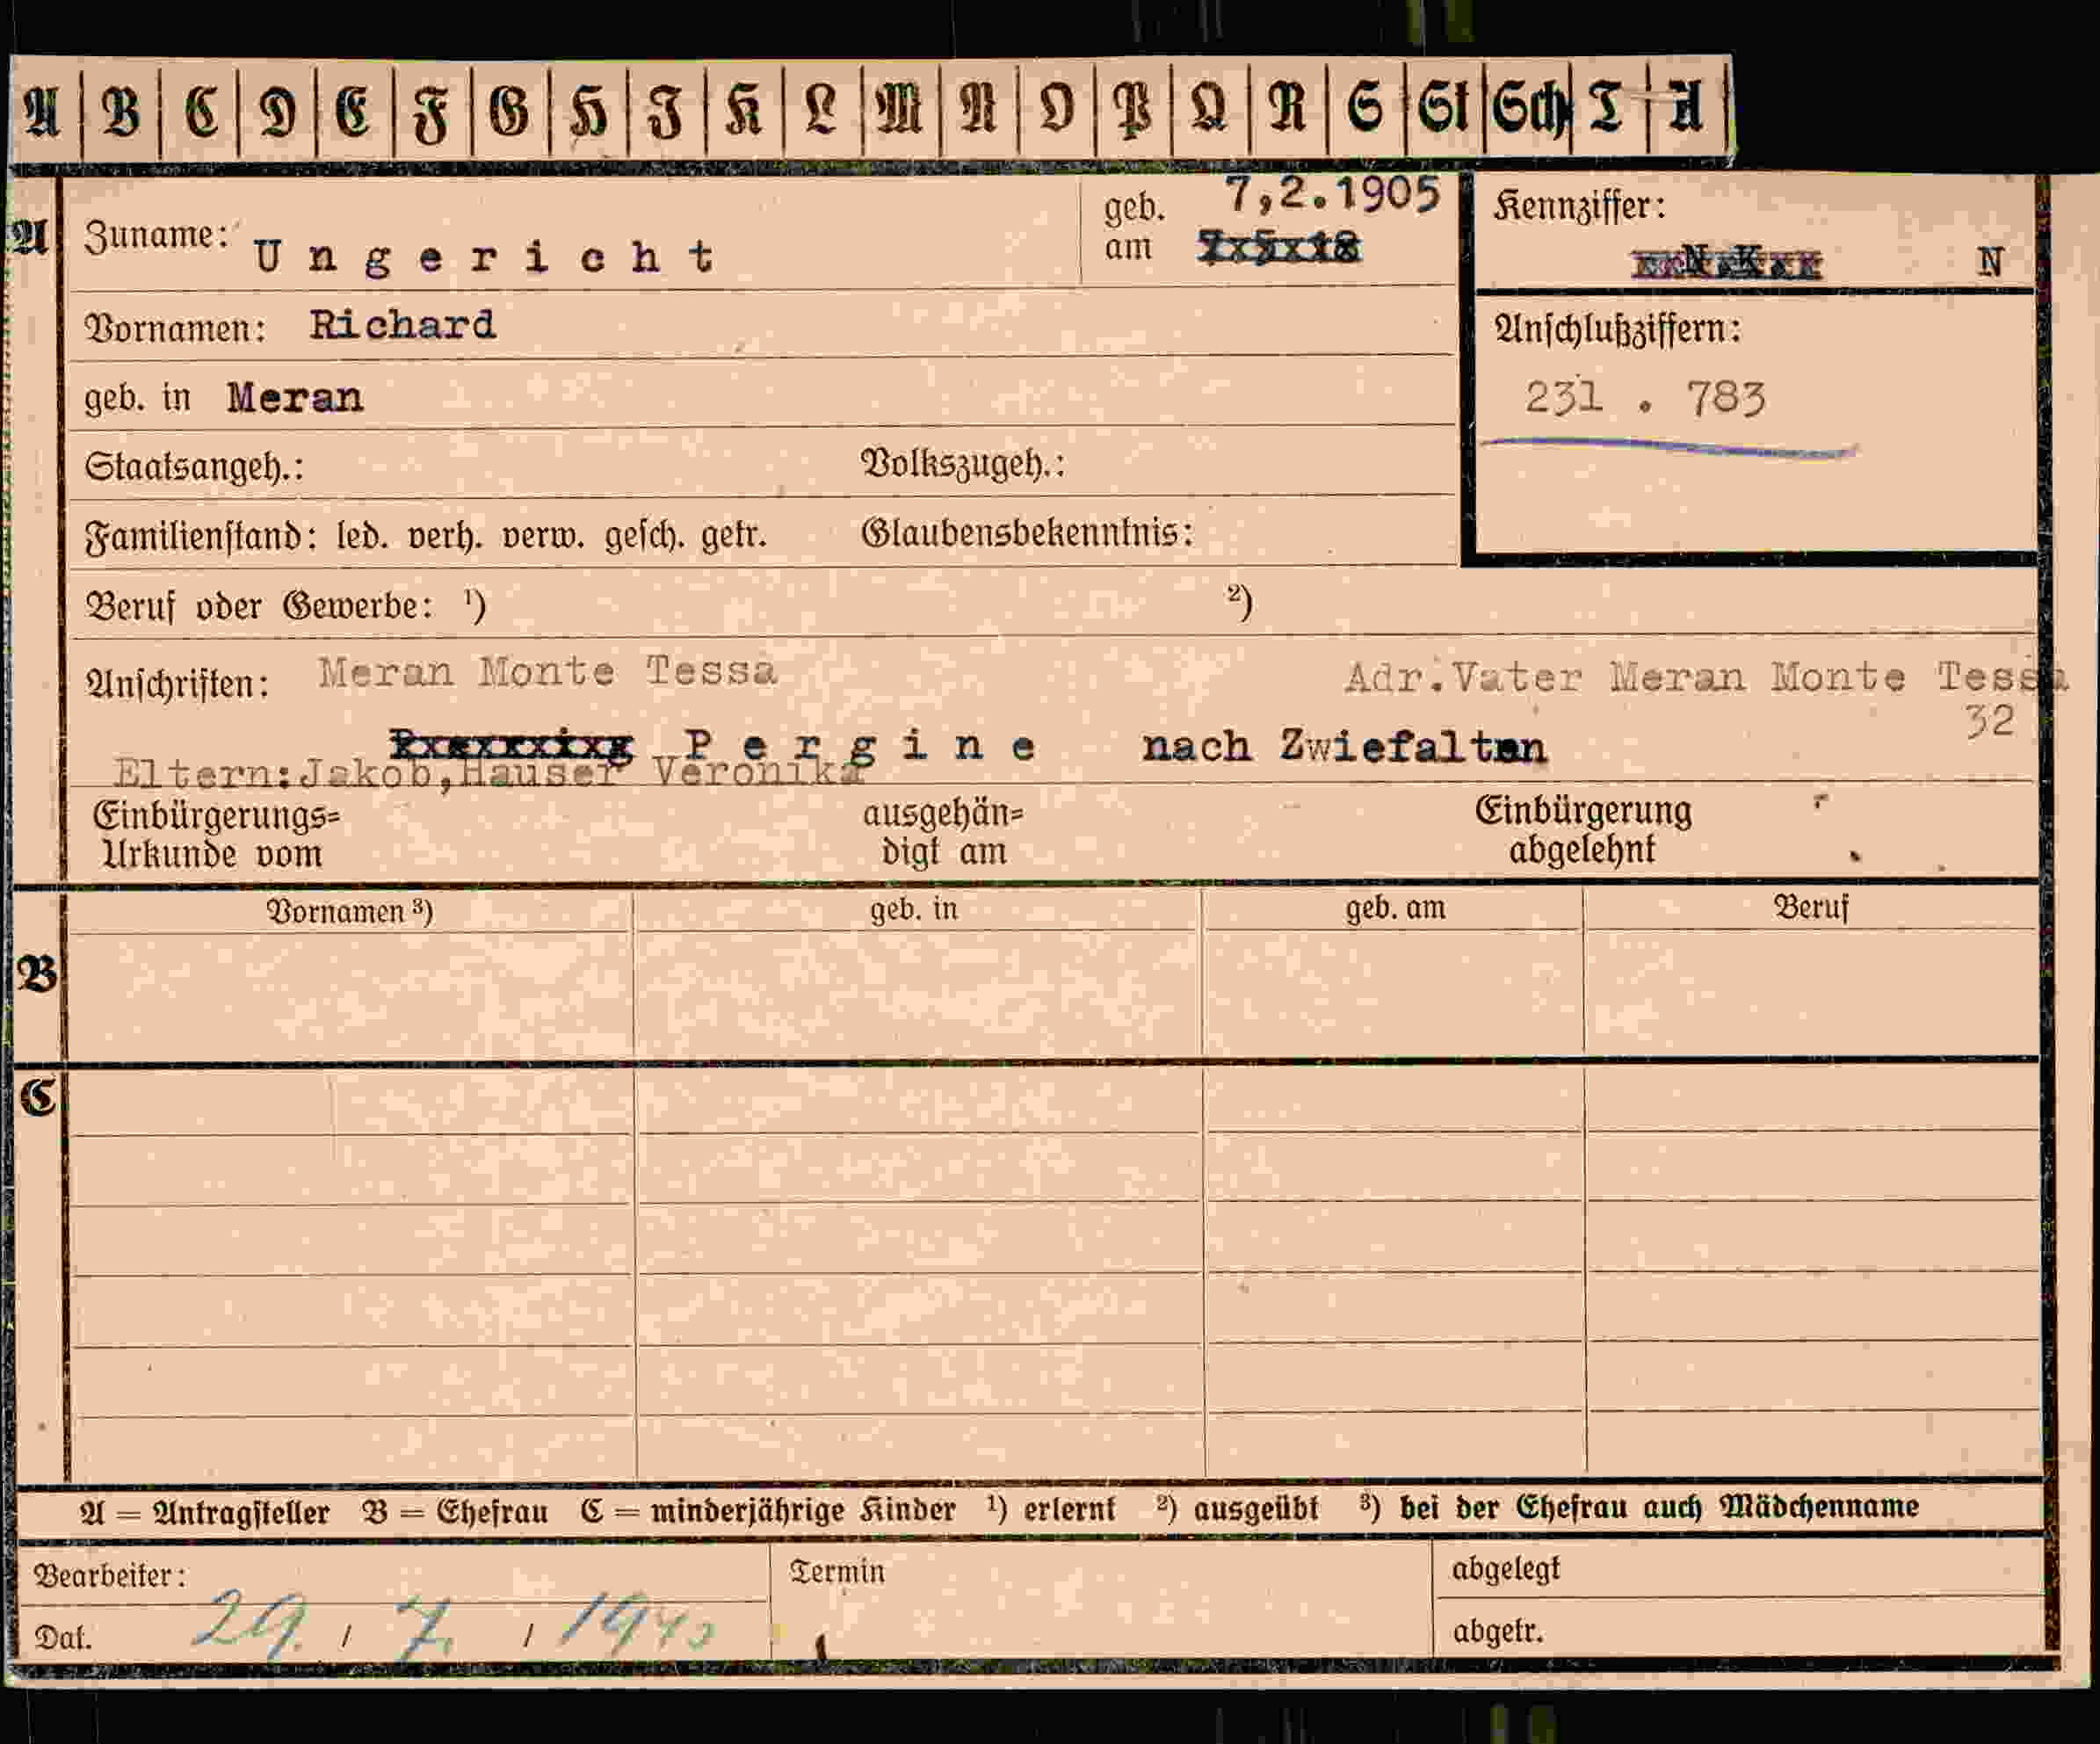 A B C D E F G H I K L M N O P Q R S St Sch T U
A
Zuname: Ungericht
geb. am 7,2.1905
Kennziffer:
N
Vornamen: Richard
Anschlußziffern:
231 . 783
geb. in Meran
Staatsangeh.: Volkszugeh.:
Familienstand: led. verh. verw. gesch. getr. Glaubensbekenntnis:
Beruf oder Gewerbe: ¹) ²)
Anschriften: Meran Monte Tessa Adr.Vater Meran Monte Tessa
32
Pergine nach Zwiefalten
Eltern:Jakob,Hauser Veronika
Einbürgerungs= ausgehän= Einbürgerung
Urkunde vom digt am abgelehnt
Vornamen ³) geb. in geb. am Beruf
B
C
A = Antragsteller B = Ehefrau C = minderjährige Kinder ¹) erlernt ²) ausgeübt ³) bei der Ehefrau auch Mädchenname
Bearbeiter: Termin abgelegt
Dat. 29. / 7. / 1940 abgetr.